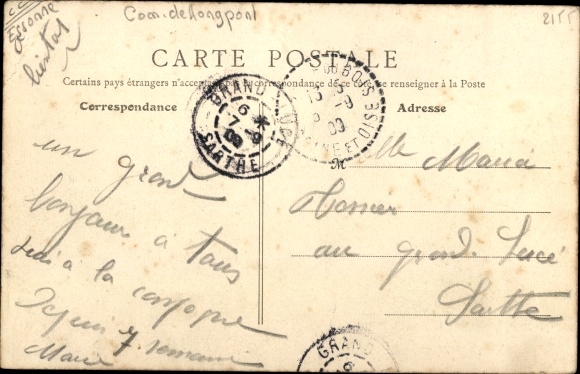 Essonne
Com. de Longpont
2155
CARTE POSTALE
Certains pays étrangers n'acceptent pas la correspondance de ce côté, se renseigner à la Poste
Correspondance
Adresse
GRAND LUCÉ
6
7-9
09
SARTHE
BOIS
SEINE ET OISE
09
un grand
bonjour à tous
suis à la campagne
Depuis 7 semaines
Marie
Melle Maria
au grand Lucé
Sarthe
GRAND
6